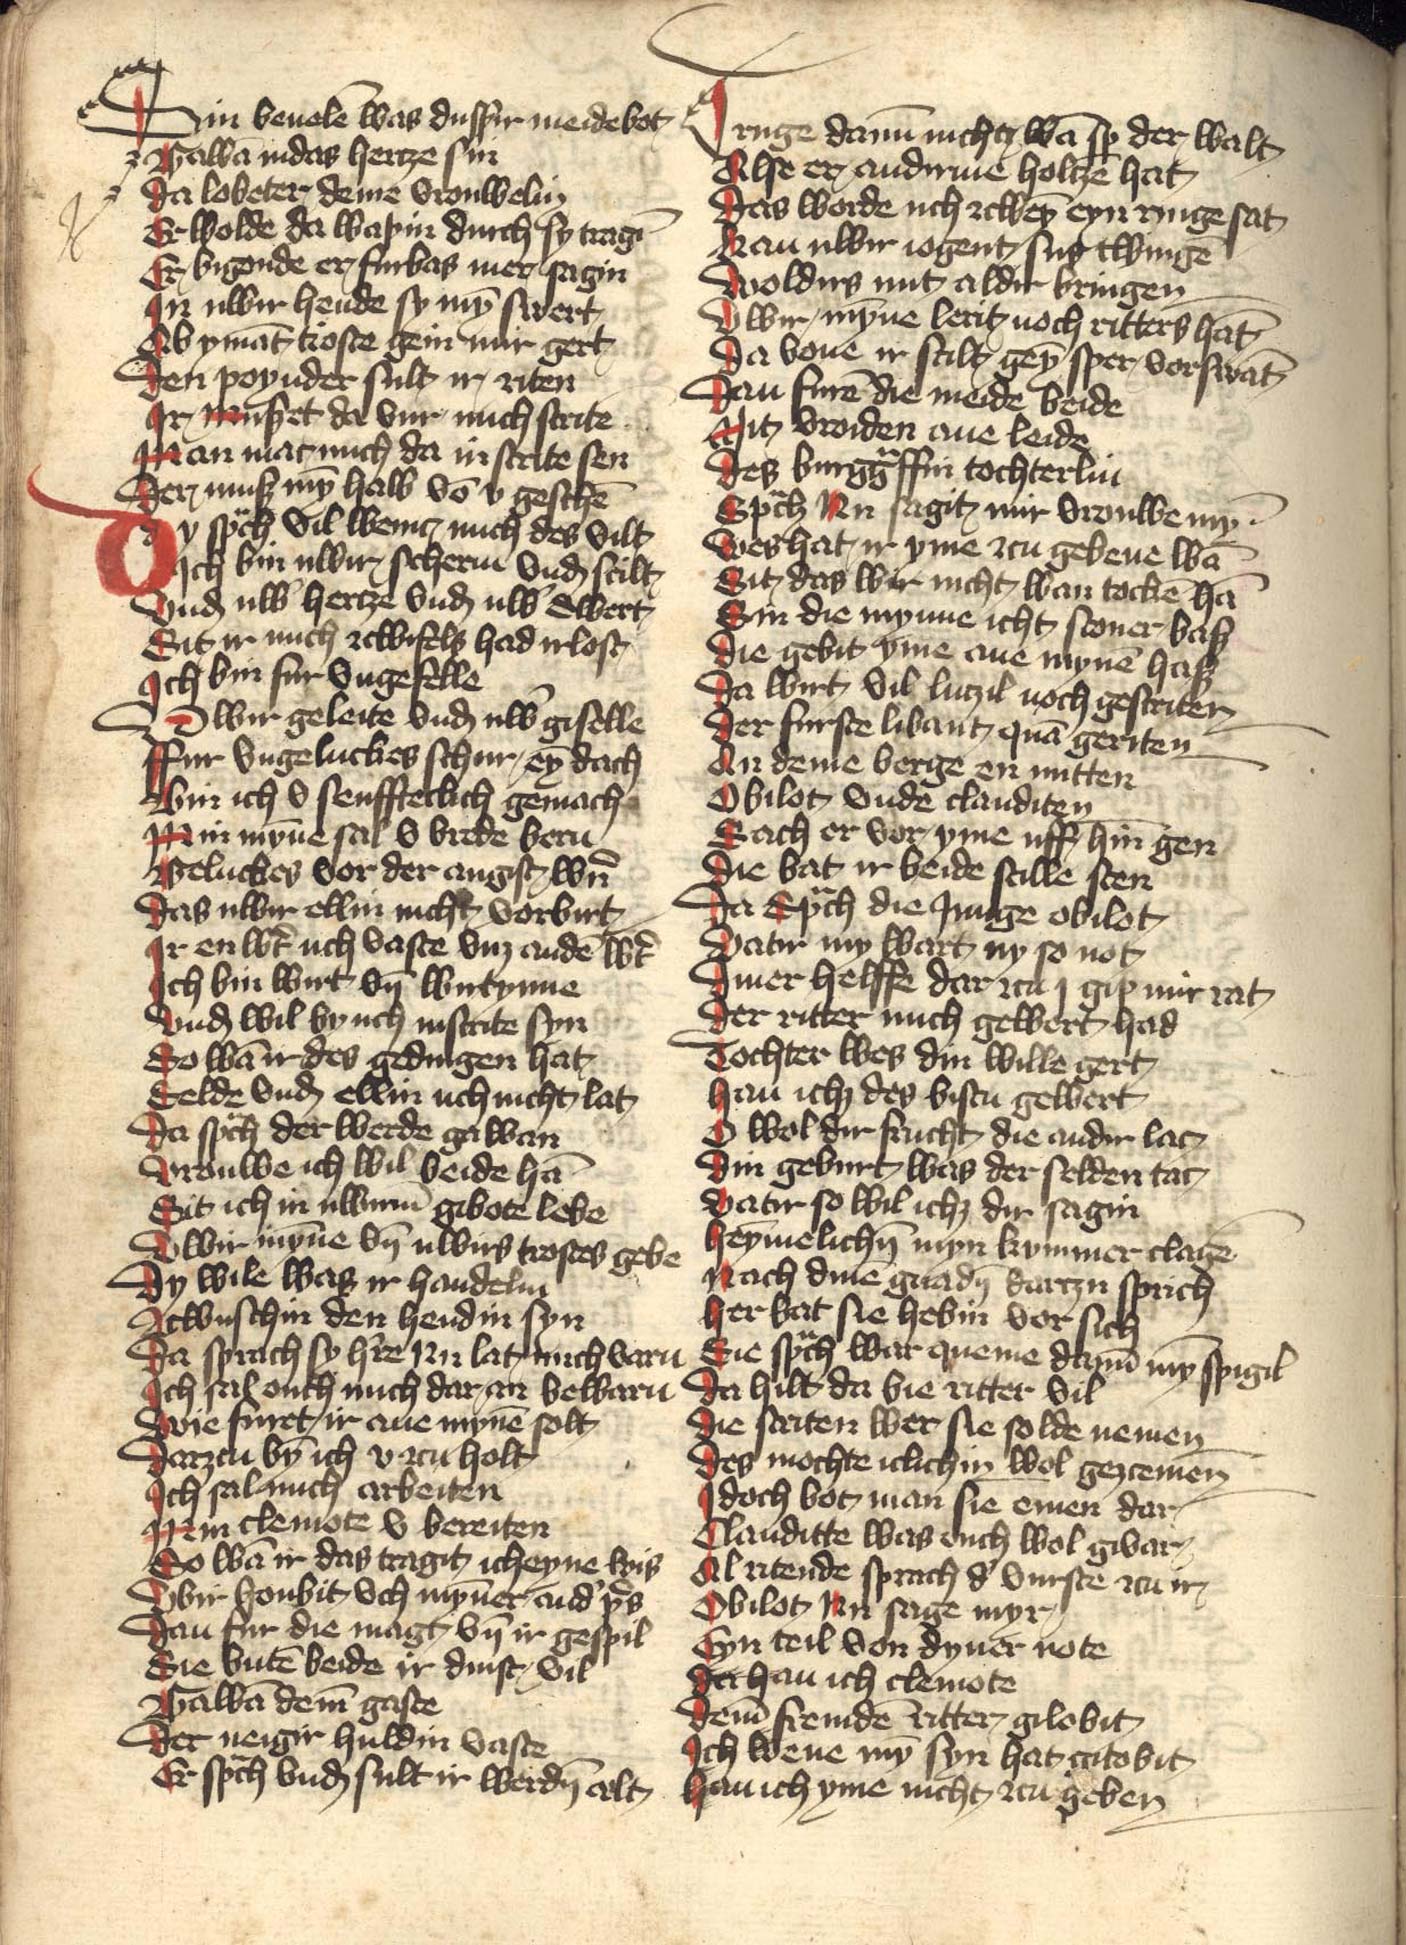 Sin beuolē was duſzir meidebot
Gawā indas hertze sin
Da lobeter deme vrouwelin
Er wolde da wapin durch sy tragī
Er bigonde er furbas mer sagin
In uwir hende sy mȳ swert
Ab ymāt tioste gein mir gert
Den poynder sult ir riten
Ir muszet da vur mich strite
Man mac mich da in strite sen
Der musz mȳ halb vō v geschē
Dy sprͣch vil wenic mich des vilt
Ich bin uwir scherm vnd schilt
Vnd uwˀ hertze vnd uwˀ Swert
Sit ir mich zcwifels had irlost
Ich bin fur vngefelle
Uwir geleite vnd uwˀ giselle
ffur vngeluckes schur eȳ dach
Bin ich v senffteclich gemach
Min mȳne sal v vrede bern
Geluckes vor der angist wˀn
Das uwir ellin nicht vorbirt
Ir en wˀt uch vaste vnz andē wˀt
Ich bin wirt vn̄ wirtynne
Vnd wil by uch instrite syn
So wā ir des gedingen hat
Selde vnd ellin uch nicht lat
Da sprͣch der werde gawan
Vrouwe ich wil beide hā
Sit ich in uwirm̄ gibote lebe
Uwir mȳne vn̄ uwirs trostes gebe
Dy wile wasz ir handelin
Zcwuschin den hendin syn
Da sprach sy hˀre Nu lat mich varn
Ich sal ouch mich dar an bewarn
Wie furet ir ane mynē solt
Darzcu bȳ ich v zcu holt
Ich sal mich arbeiten
Min cleinote v bereiten
So wā ir das tragit icheyne wis
Ubir houbit vch mȳner andˀ prˀs
Dan fur die magt vn̄ ir gespil
Sie butē beide ir dinst vil
Gawā dem̄ gaste
Der neigir huldin vaste
Er sprͣch vnd sult ir werdn̄ alt
Truge dann̄ nicht wā sp der walt
Alse er andirme holczē hat
Das worde uch zcweȳ eyn ringe sat
Kan uwir iogent sus twingē
Woldirs mit aldir bringen
Uwir mȳne lerit noch ritters hāt
Da vone ir schilt geȳ sper vorswāt
Dan furē die meide beide
Mit vroiden ane leide
Des burggrͣffin tochterlin
Sprͣch Nu sagit mir vrouwe mȳ
Wes hat ir yme zcu gebene wā
Sit das wir nicht wan tockē hā
Sin die mynne icht sconer basz
Die gebit yme ane mynē hasz
Da wirt vil lutzil noch gestriten
Der furste libant quā geriten
An deme berge en mitten
Obilot vnde clauditen
Sach er vor yme uff hin gen
Die bat ir beide stille sten
Da Sprͣch die Junge obilot
Vatir my wart ny so not
Diner helffe dar zcu j gip mir rat
Der ritter mich gewert had
Tochter wes din wille gert
Han ichz des bistu gewert
O wol dir frucht die andir lac
Din geburt was der selden tac
Vatir so wil ichz dir sagin
Heȳmelichn̄ myn kymmer clage
Nach dinē gnadn̄ darczu sprich
Her bat sie hebin vor sich
Sie sprͣch war queme dann̄ mȳ spigil
Da hilt da bie ritter vil
Die striten wer sie solde nemen
Des mochte iclichin wol gezcemen
Idoch bot man sie einen dar
Clauditte was ouch wol givar
Al ritende sprach dˀ vurste zcu ir
Obilot Nu sage myr
Eyn teil von dyner note
Da han ich cleinote
Dem̄ fremdē ritter gilobit
Ich wene mȳ syn hat gitobit
Han ich yme nicht zcu geben